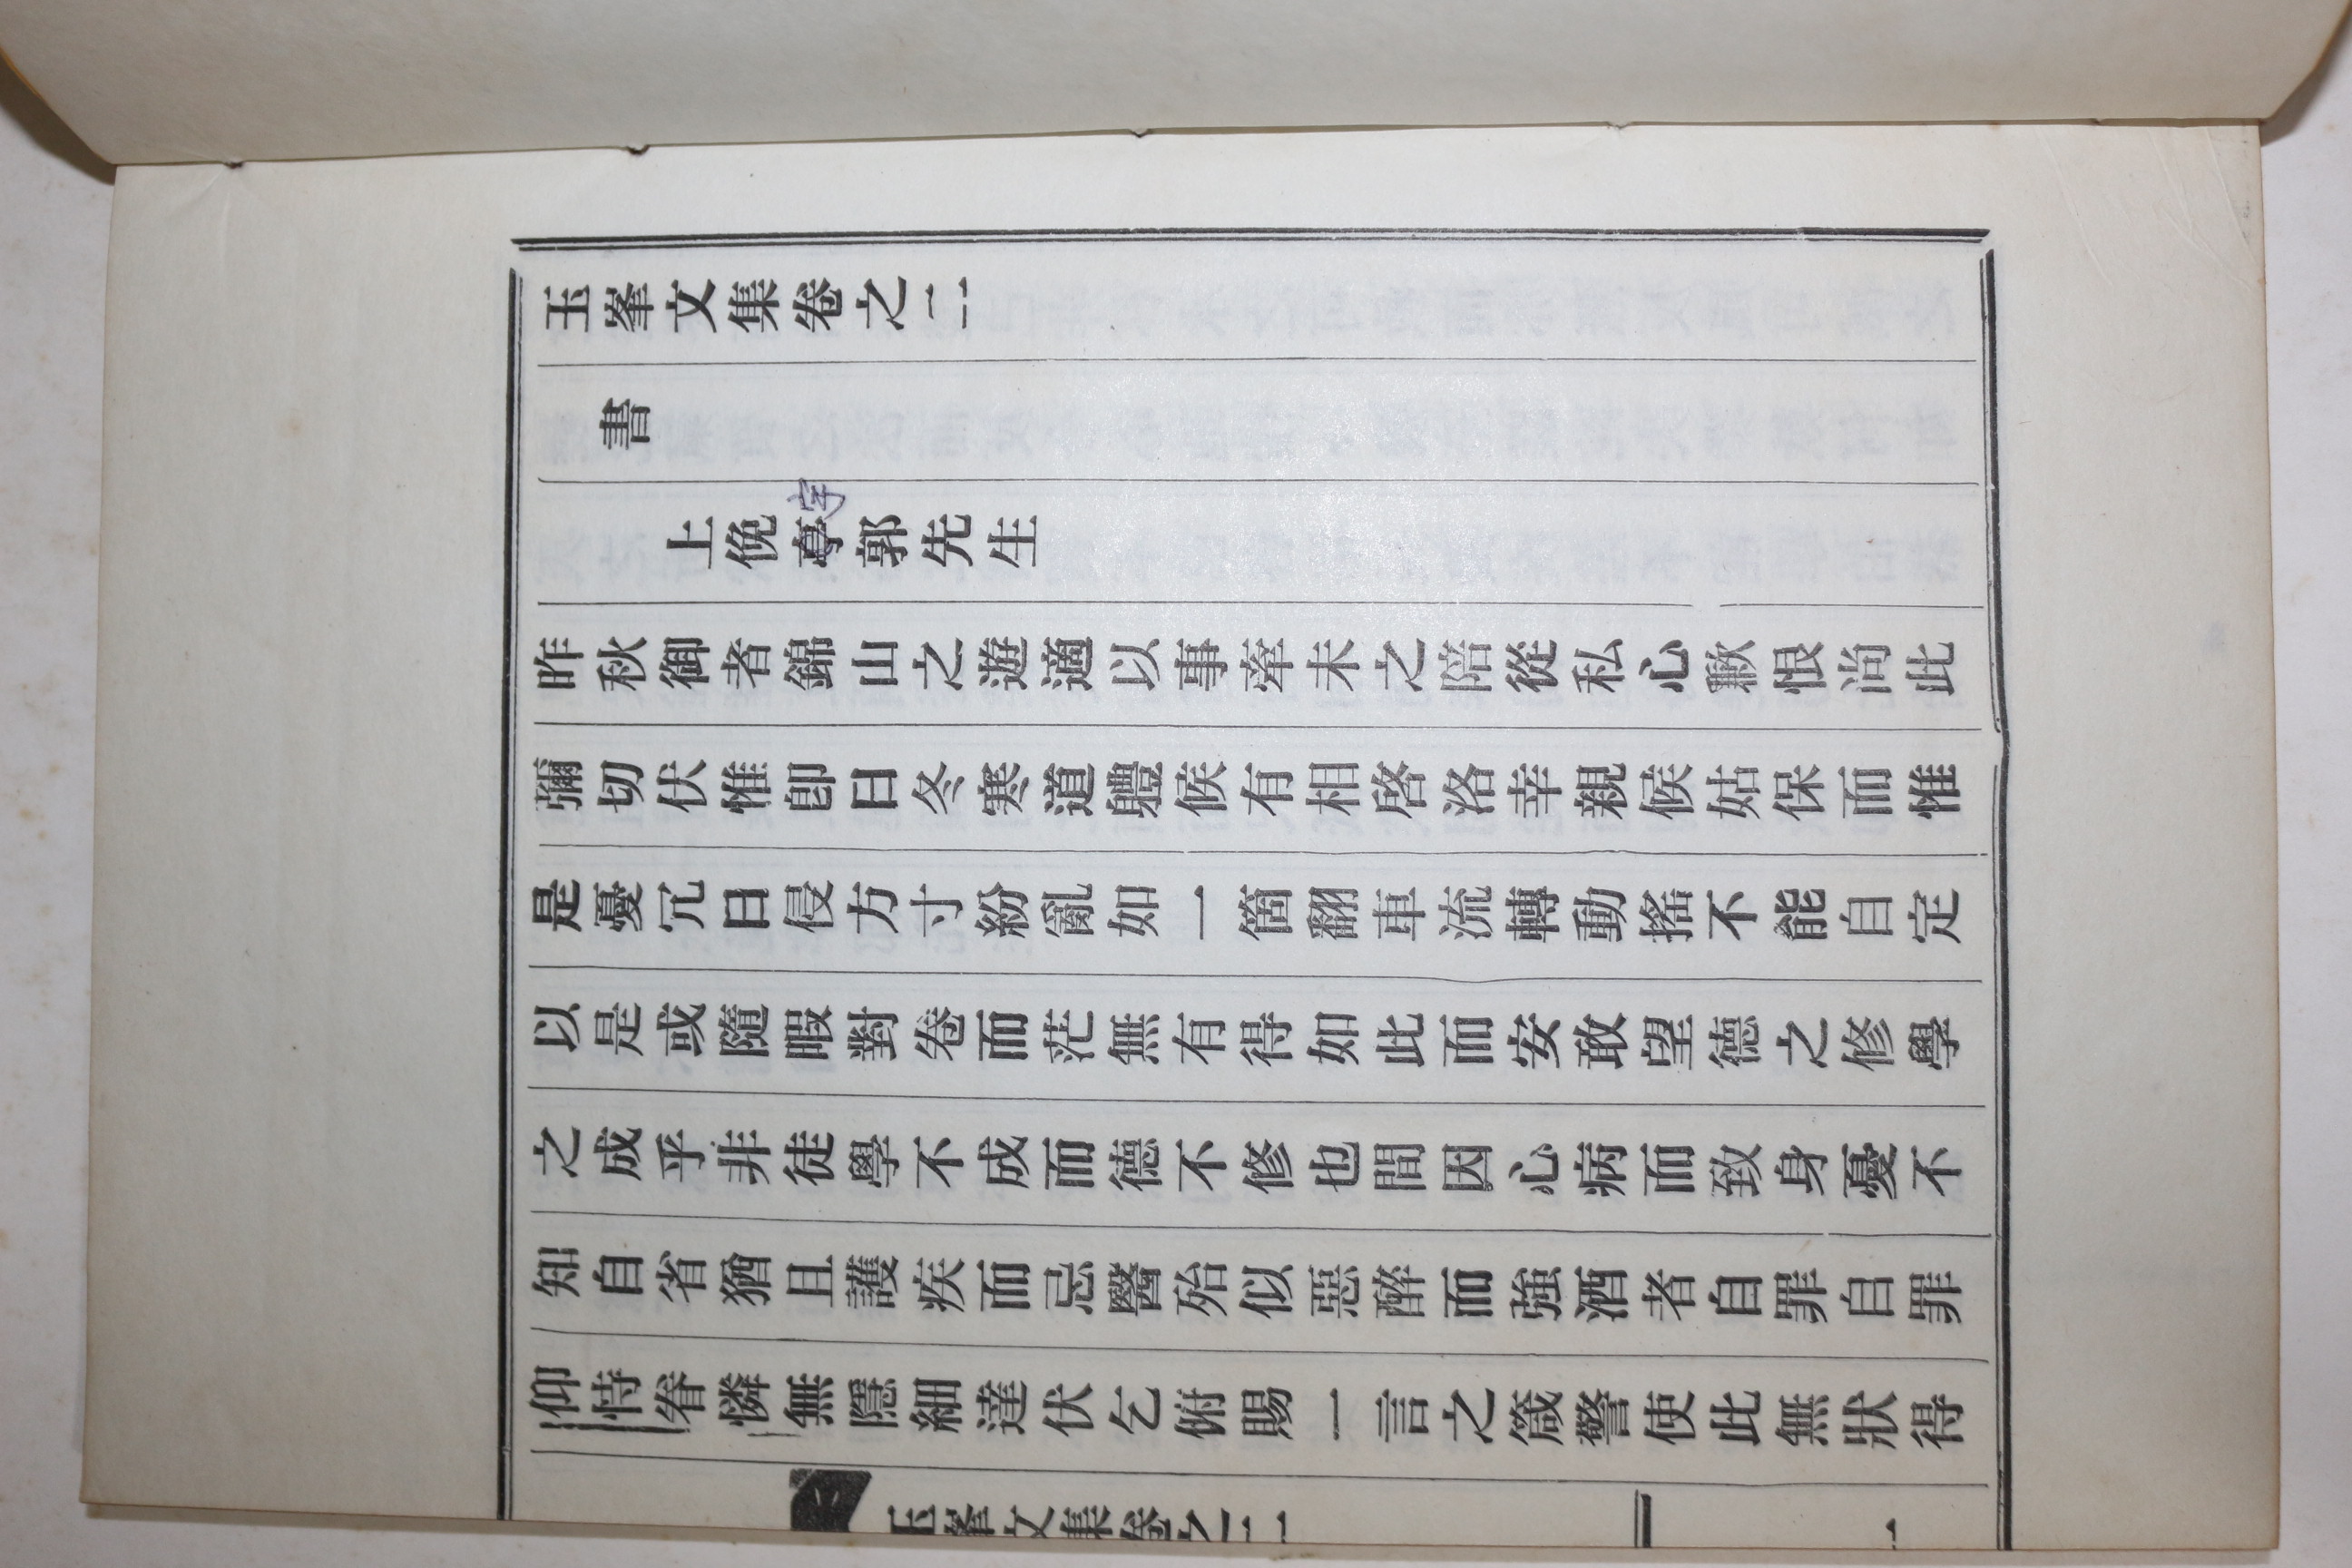 玉峯文集卷之二
書
上俛宇郭先生
昨秋御者錦山之遊適以事牽未之陪從私心歉恨尚此
彌切伏惟卽日冬寒道軆候有相啓洛幸親候姑保而惟
是憂冗日侵方寸紛亂如一箇翻車流轉動搖不能自定
以是或隨暇對卷而茫無有得如此而安敢望德之修學
之成乎非徒學不成而德不修也間因心病而致身憂不
知自省猶且護疾而忌醫殆似惡醉而強酒者自罪自罪
仰恃眷憐無隱細達伏乞俯賜一言之箴警使此無狀得
玉峯文集卷之二 一